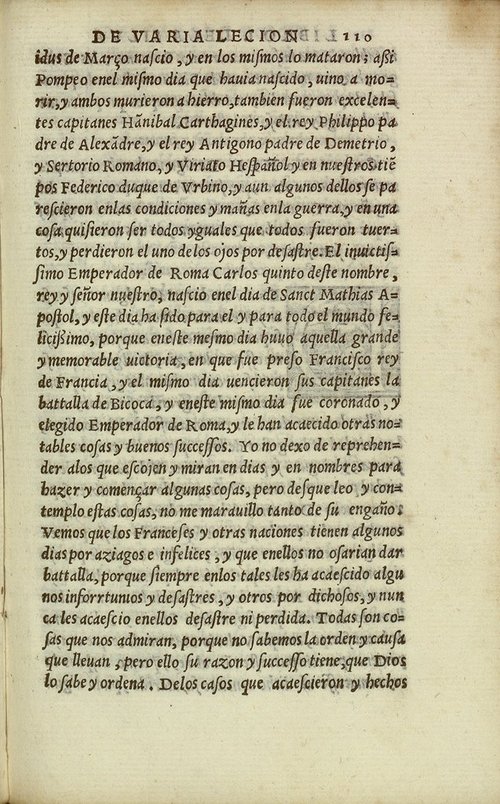 DE VARIA LECION 110
idus de Março nascio, y en los mismos lo mataron: aßi
Pompeo enel mismo dia que hauia nascido, uino a mo-
rir, y ambos murieron a hierro, tambien fueron excelen-
tes capitanes Hãnibal Carthagines, y el rey Philippo pa
dre de Alexãdre, y el rey Antigono padre de Demetrio,
y Sertorio Romano, y Viriato Hespañol y en nuestros tiẽ
pos Federico duque de Vrbino, y aun algunos dellos se pa
rescieron enlas condiciones y mañas enla guerra, y en una
cosa quisieron ser todos yguales que todos fueron tuer-
tos, y perdieron el uno de los ojos por desastre. El inuictis-
simo Emperador de Roma Carlos quinto deste nombre,
rey y señor nuestro, nascio enel dia de Sanct Mathias A-
postol, y este dia ha sido para el y para todo el mundo fe-
licißimo, porque eneste mesmo dia huuo aquella grande
y memorable uictoria, en que fue preso Francisco rey
de Francia, y el mismo dia uencieron sus capitanes la
battalla de Bicoca, y eneste mismo dia fue coronado, y
elegido Emperador de Roma, y le han acaecido otras no-
tables cosas y buenos successos. Yo no dexo de reprehen-
der alos que escojen y miran en dias y en nombres para
hazer y començar algunas cosas, pero desque leo y con-
templo estas cosas, no me marauillo tanto de su engaño.
Vemos que los Franceses y otras naciones tienen algunos
dias por aziagos e infelices, y que enellos no osarian dar
battalla, porque siempre enlos tales les ha acaescido algu
nos inforrtunios y desastres, y otros por dichosos, y nun
ca les acaescio enellos desastre ni perdida. Todas son co-
sas que nos admiran, porque no sabemos la orden y causa
que lleuan, pero ello su razon y successo tiene, que Dios
lo sabe y ordena. Delos casos que acaescieron y hechos